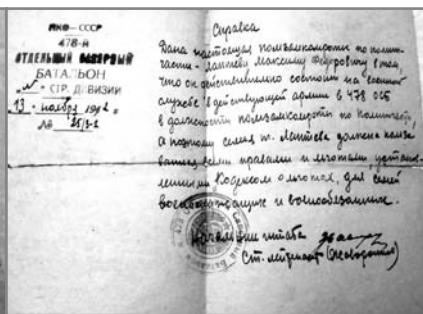 НКО — СССР
478-й
ОТДЕЛЬНЫЙ САПЕРНЫЙ
БАТАЛЬОН
"N" СТР. ДИВИЗИИ
13 ноября 1942 г.
№
Справка
Дана настоящая помзамкомроты по полит-
части - Лаптеву Максиму Федоровичу в том,
что он действительно состоит на военной
службе в действующей армии в 478 ОСБ
в должности помзамкомроты по политчасти,
а поэтому семья т. Лаптева должна пользо-
ваться всеми правами и льготами, установ-
ленными Кодексом о льготах, для семей
военнослужащих и военнообязанных.
Начальник штаба
Ст. лейтенант